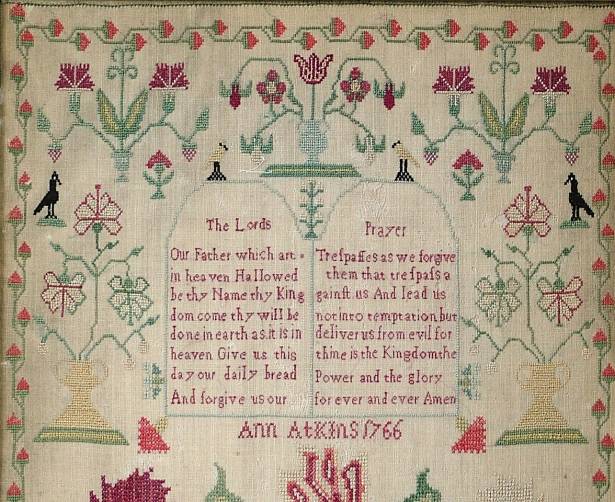 The Lords
Our Father which art
in heaven Hallowed
be thy Name thy King
dom come thy will be
done in earth as.it is in
heaven Give us this
day our daily bread
And forgive us our
Prayer
Treſpaſſes as we forgive
them that treſpaſs a
gainſt us And lead us
not into temptation but
deliver us from evil for
thine is the Kingdom the
Power and the glory
for ever and ever Amen
Ann Atkins 1766